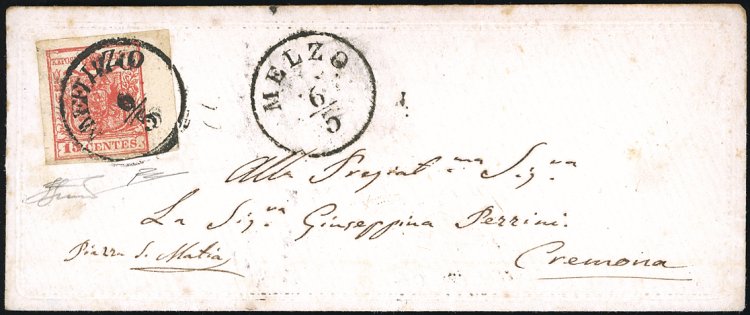 MELZO
6/5
MELZO
6/5
15 CENTES.
Alla Pregiat.ma Sig.ra
La Sig.ra Giuseppina Perrini.
Piazza S. Mattia
Cremona